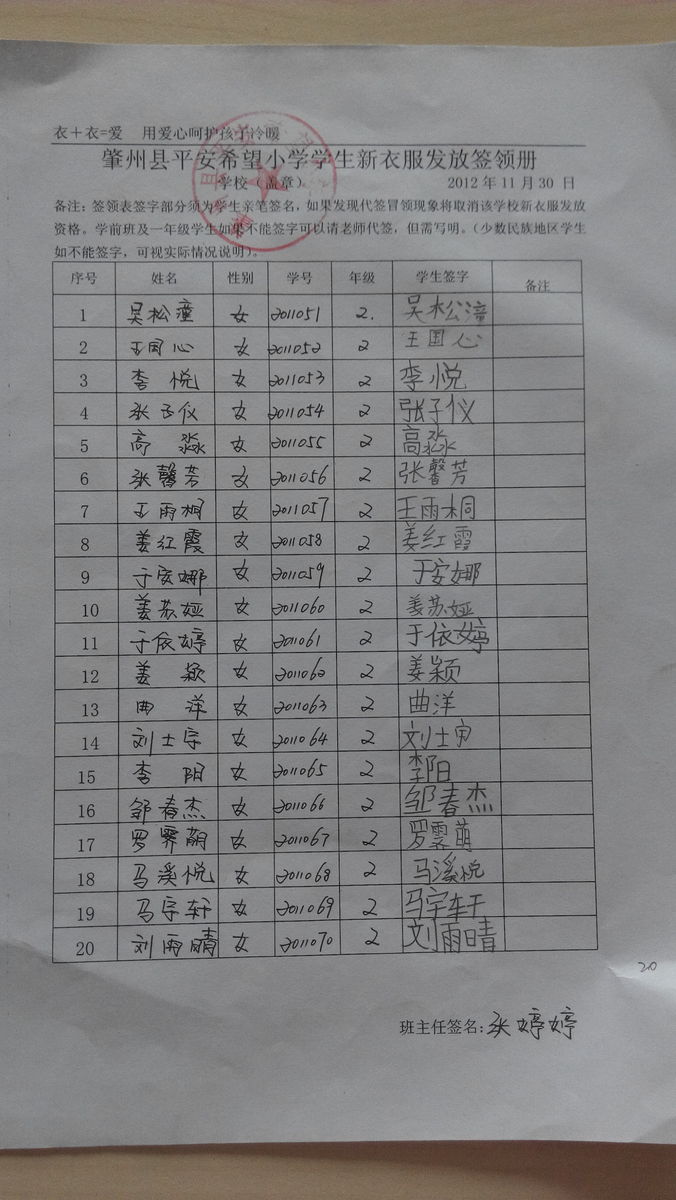 衣+衣=爱 用爱心呵护孩子冷暖
肇州县平安希望小学学生新衣服发放签领册
学校（盖章） 2012年11月30日
备注：签领表签字部分须为学生亲笔签名，如果发现代签冒领现象将取消该学校新衣服发放
资格。学前班及一年级学生如果不能签字可以请老师代签，但需写明。（少数民族地区学生
如不能签字，可视实际情况说明）。
序号 姓名 性别 学号 年级 学生签字 备注
1 吴松潼 女 2011051 2. 吴松潼
2 王国心 女 2011052 2 王国心
3 李悦 女 2011053 2 李悦
4 张子仪 女 2011054 2 张子仪
5 高淼 女 2011055 2 高淼
6 张馨芳 女 2011056 2 张馨芳
7 王雨桐 女 2011057 2 王雨桐
8 姜红霞 女 2011058 2 姜红霞
9 于安娜 女 2011059 2 于安娜
10 姜苏娅 女 2011060 2 姜苏娅
11 于依婷 女 2011061 2 于依婷
12 姜颖 女 2011062 2 姜颖
13 曲洋 女 2011063 2 曲洋
14 刘士宇 女 2011064 2 刘士
15 李阳 女 2011065 2 李阳
16 邹春杰 女 2011066 2 邹春杰
17 罗霁萌 女 2011067 2 罗霁萌
18 马溪悦 女 2011068 2 马溪悦
19 马宇轩 女 2011069 2 马宇轩
20 刘雨晴 女 2011070 2 刘雨晴
20
班主任签名：张婷婷